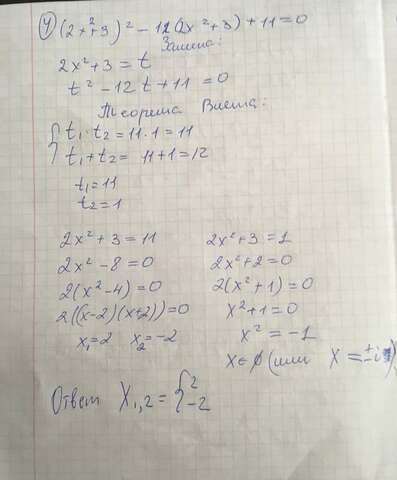 4) (2x²+3)² - 12(2x²+3) + 11 = 0
Замена:
2x²+3 = t
t² - 12t + 11 = 0
Теорема Виета:
{ t₁·t₂ = 11·1 = 11
t₁+t₂ = 11+1 = 12
t₁ = 11
t₂ = 1
2x²+3 = 11
2x²-8 = 0
2(x²-4) = 0
2((x-2)(x+2)) = 0
x₁ = 2 x₂ = -2
2x²+3 = 1
2x²+2 = 0
2(x²+1) = 0
x²+1 = 0
x² = -1
x ∈ ∅ (или x = ±i)
Ответ x₁,₂ = { 2
-2